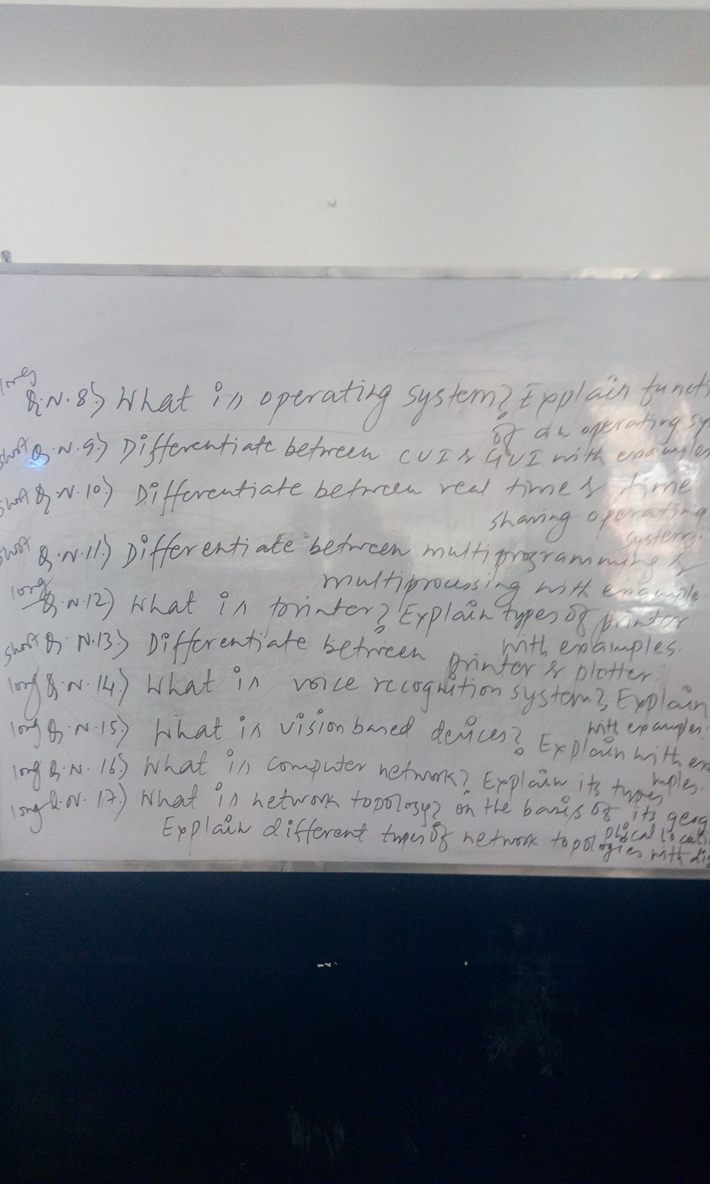 long
Q.N.8) What is operating system? Explain funct
of an operating sy
short Q.N.9) Differentiate between CUI & GUI with examples
short Q.N.10) Differentiate between real time & time
sharing operating
system.
short Q.N.11) Differentiate between multiprogramming &
multiprocessing with example.
long Q.N.12) What is printer? Explain types of printer
with examples.
short Q.N.13) Differentiate between
printer & plotter.
long Q.N.14) What is voice recognition system? Explain
with examples.
long Q.N.15) What is vision based devices? Explain with ex
mples.
long Q.N.16) What is computer network? Explain its types
on the basis of its geog
phical locati
long Q.N.17) What is network topology?
Explain different types of network topologies with di